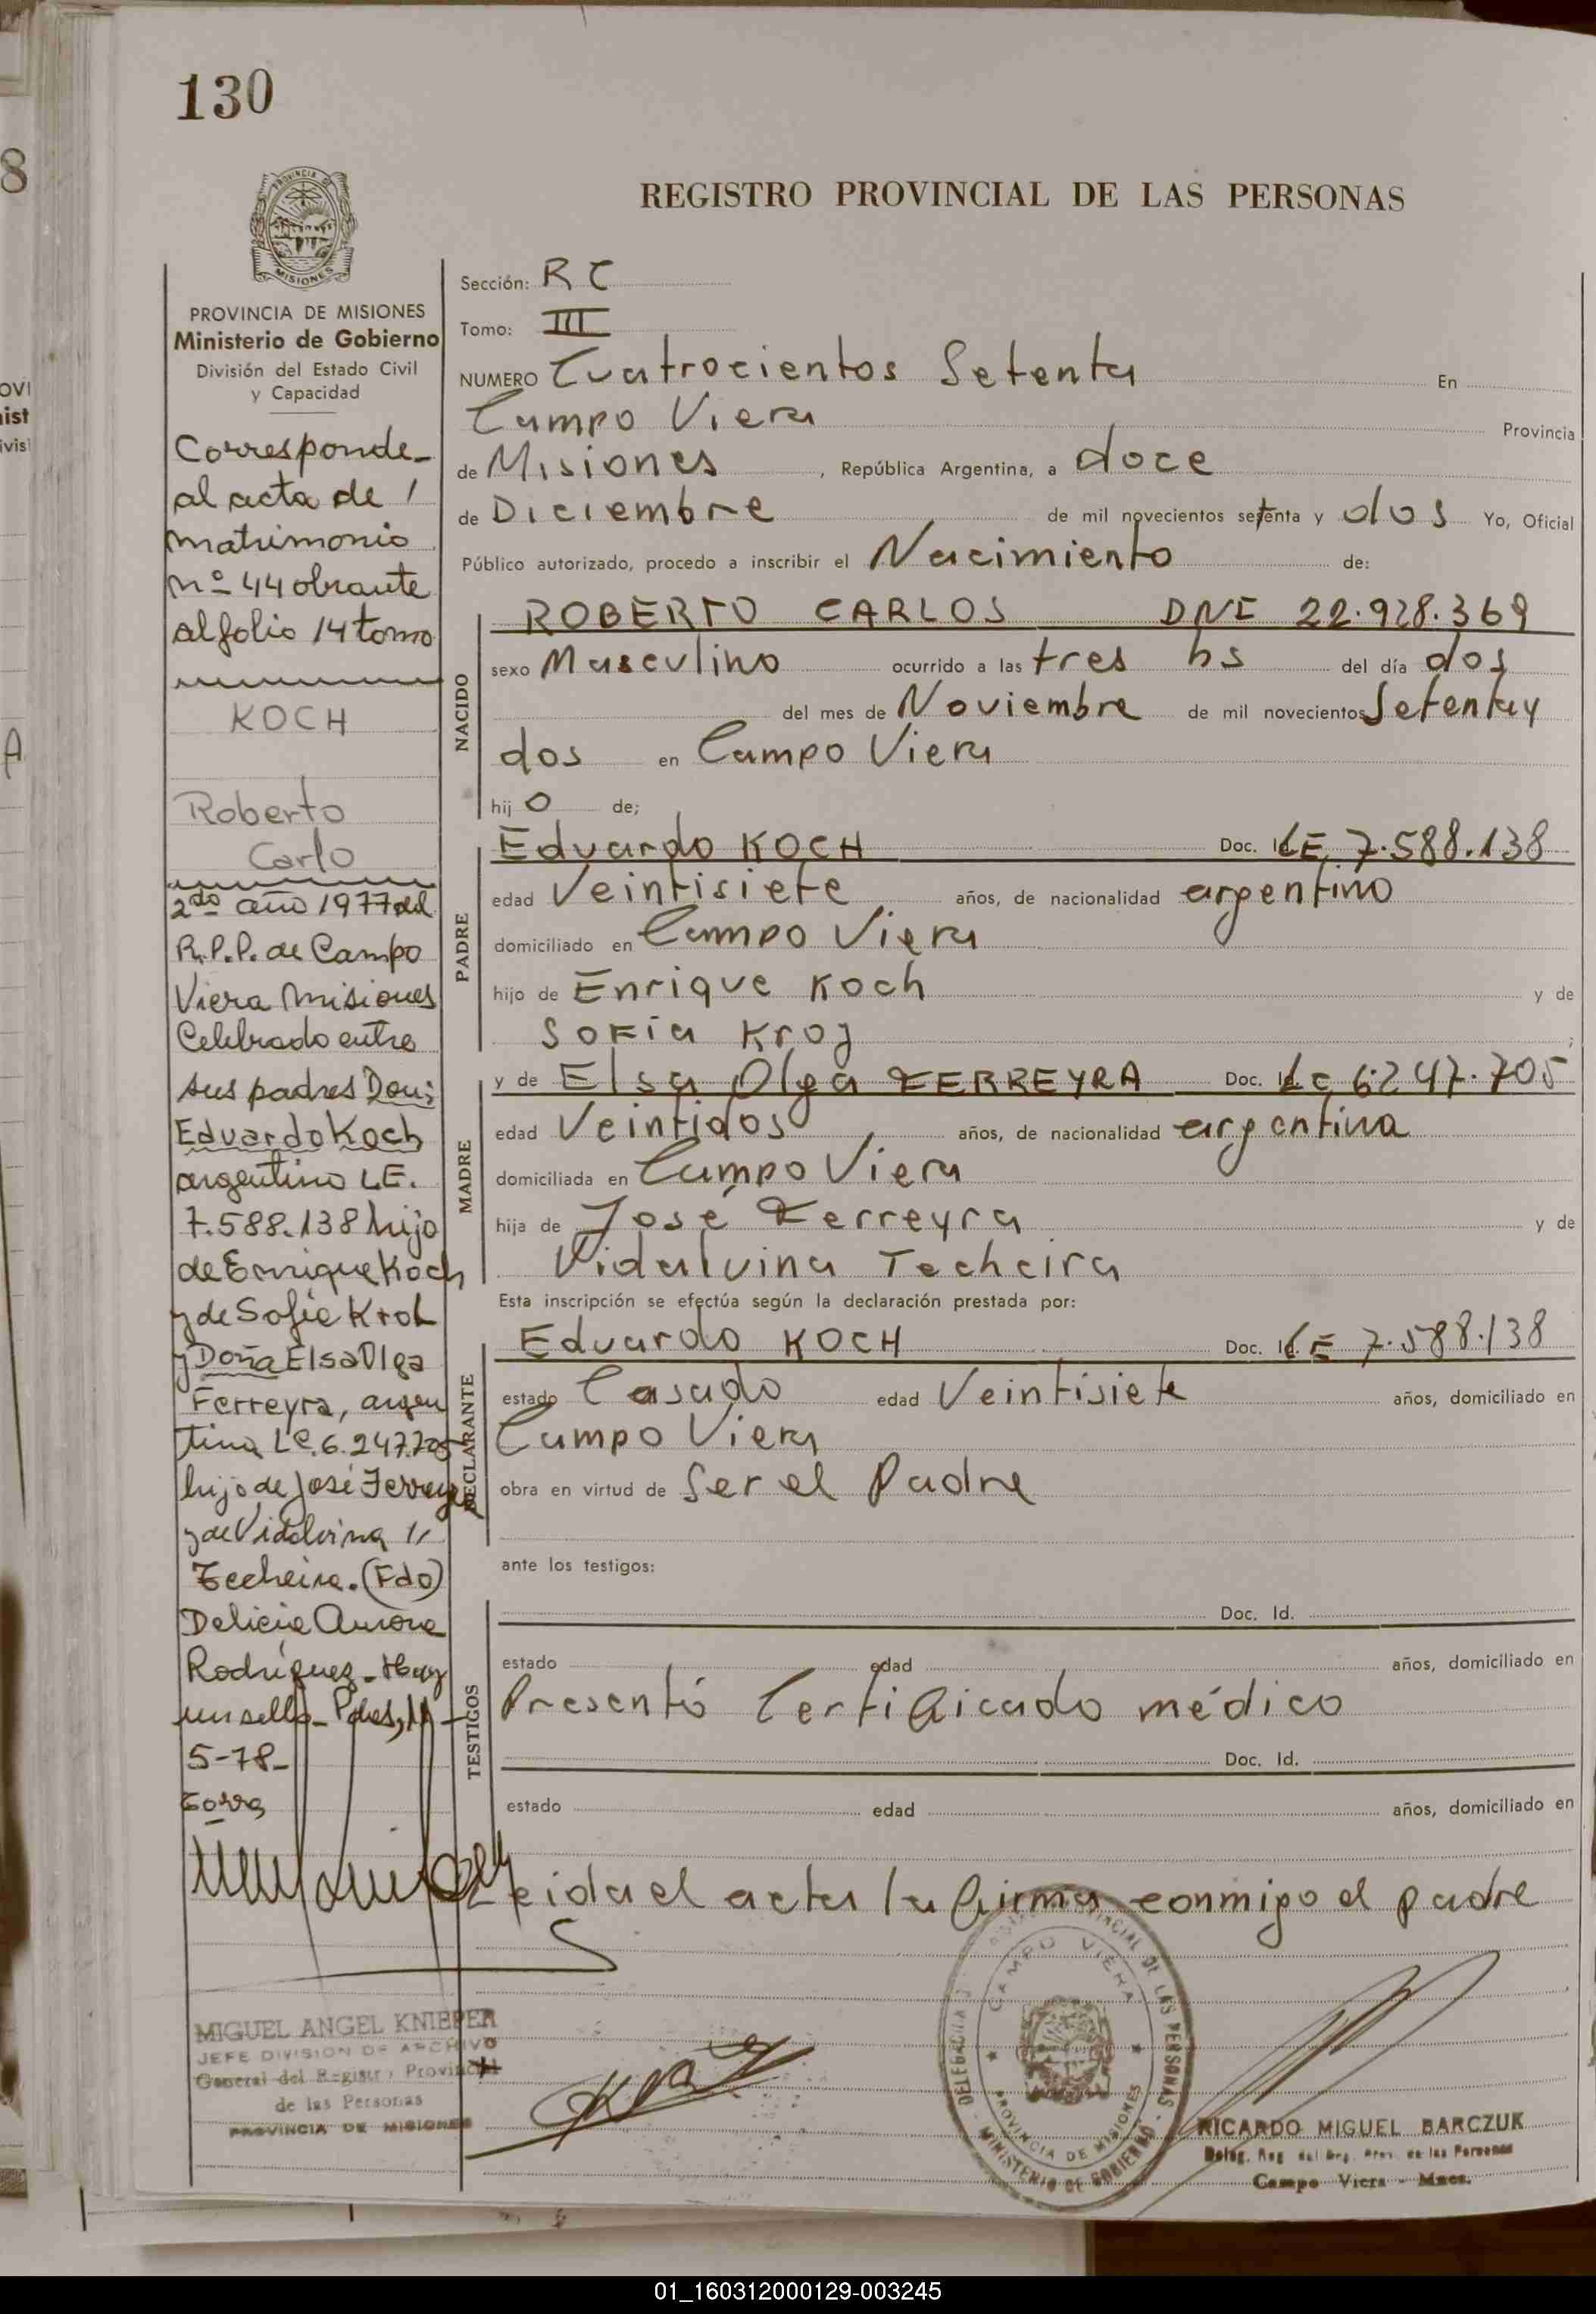 130
REGISTRO PROVINCIAL DE LAS PERSONAS
PROVINCIA DE MISIONES
Ministerio de Gobierno
División del Estado Civil
y Capacidad
Corresponde-
al acta de 1
matrimonio
nº 44 obrante
al folio 14 tomo
KOCH
Roberto
Carlo
2do año 1977 del
R.P.P. de Campo
Viera Misiones
Celebrado entre
sus padres Don:
Eduardo Koch
argentino LE.
7.588.138 hijo
de Enrique Koch
y de Sofie Krol
y Doña Elsa Olga
Ferreyra, argen
tina LC. 6.247.705
hija de José Ferreyra
y de Vidalvina
Techeira. (Fdo)
Delicia Aurora
Rodríguez - Hay
un sello - Pdas, 11
5-78-
MIGUEL ANGEL KNIEPER
JEFE DIVISION DE ARCHIVO
General del Registro Provincial
de las Personas
PROVINCIA DE MISIONES
Sección: R C
Tomo: III
NUMERO Cuatrocientos Setenta En
Campo Viera Provincia
de Misiones, República Argentina, a doce
de Diciembre de mil novecientos setenta y dos Yo, Oficial
Público autorizado, procedo a inscribir el Nacimiento de:
NACIDO
ROBERTO CARLOS DNI 22.928.369
sexo Masculino ocurrido a las tres hs del día dos
del mes de Noviembre de mil novecientos Setenta y
dos en Campo Viera
hij o de;
PADRE
Eduardo KOCH Doc. LE 7.588.138
edad Veintisiete años, de nacionalidad argentino
domiciliado en Campo Viera
hijo de Enrique Koch y de
Sofía Kroj
MADRE
y de Elsa Olga FERREYRA Doc. LC 6247.705
edad Veintidos años, de nacionalidad argentina
domiciliada en Campo Viera
hija de José Ferreyra y de
Vidalvina Techeira
Esta inscripción se efectúa según la declaración prestada por:
DECLARANTE
Eduardo KOCH Doc. LE 7.588.138
estado Casado edad Veintisiete años, domiciliado en
Campo Viera
obra en virtud de Ser el Padre
ante los testigos:
TESTIGOS
Doc. Id.
estado edad años, domiciliado en
Presentó Certificado médico
Doc. Id.
estado edad años, domiciliado en
Leida el acta la firma conmigo el padre
CAMPO VIERA
PROVINCIA DE MISIONES
MINISTERIO DE GOBIERNO
RICARDO MIGUEL BARCZUK
Deleg. Reg. del Reg. Prov. de las Personas
Campo Viera - Mnes.
01_160312000129-003245